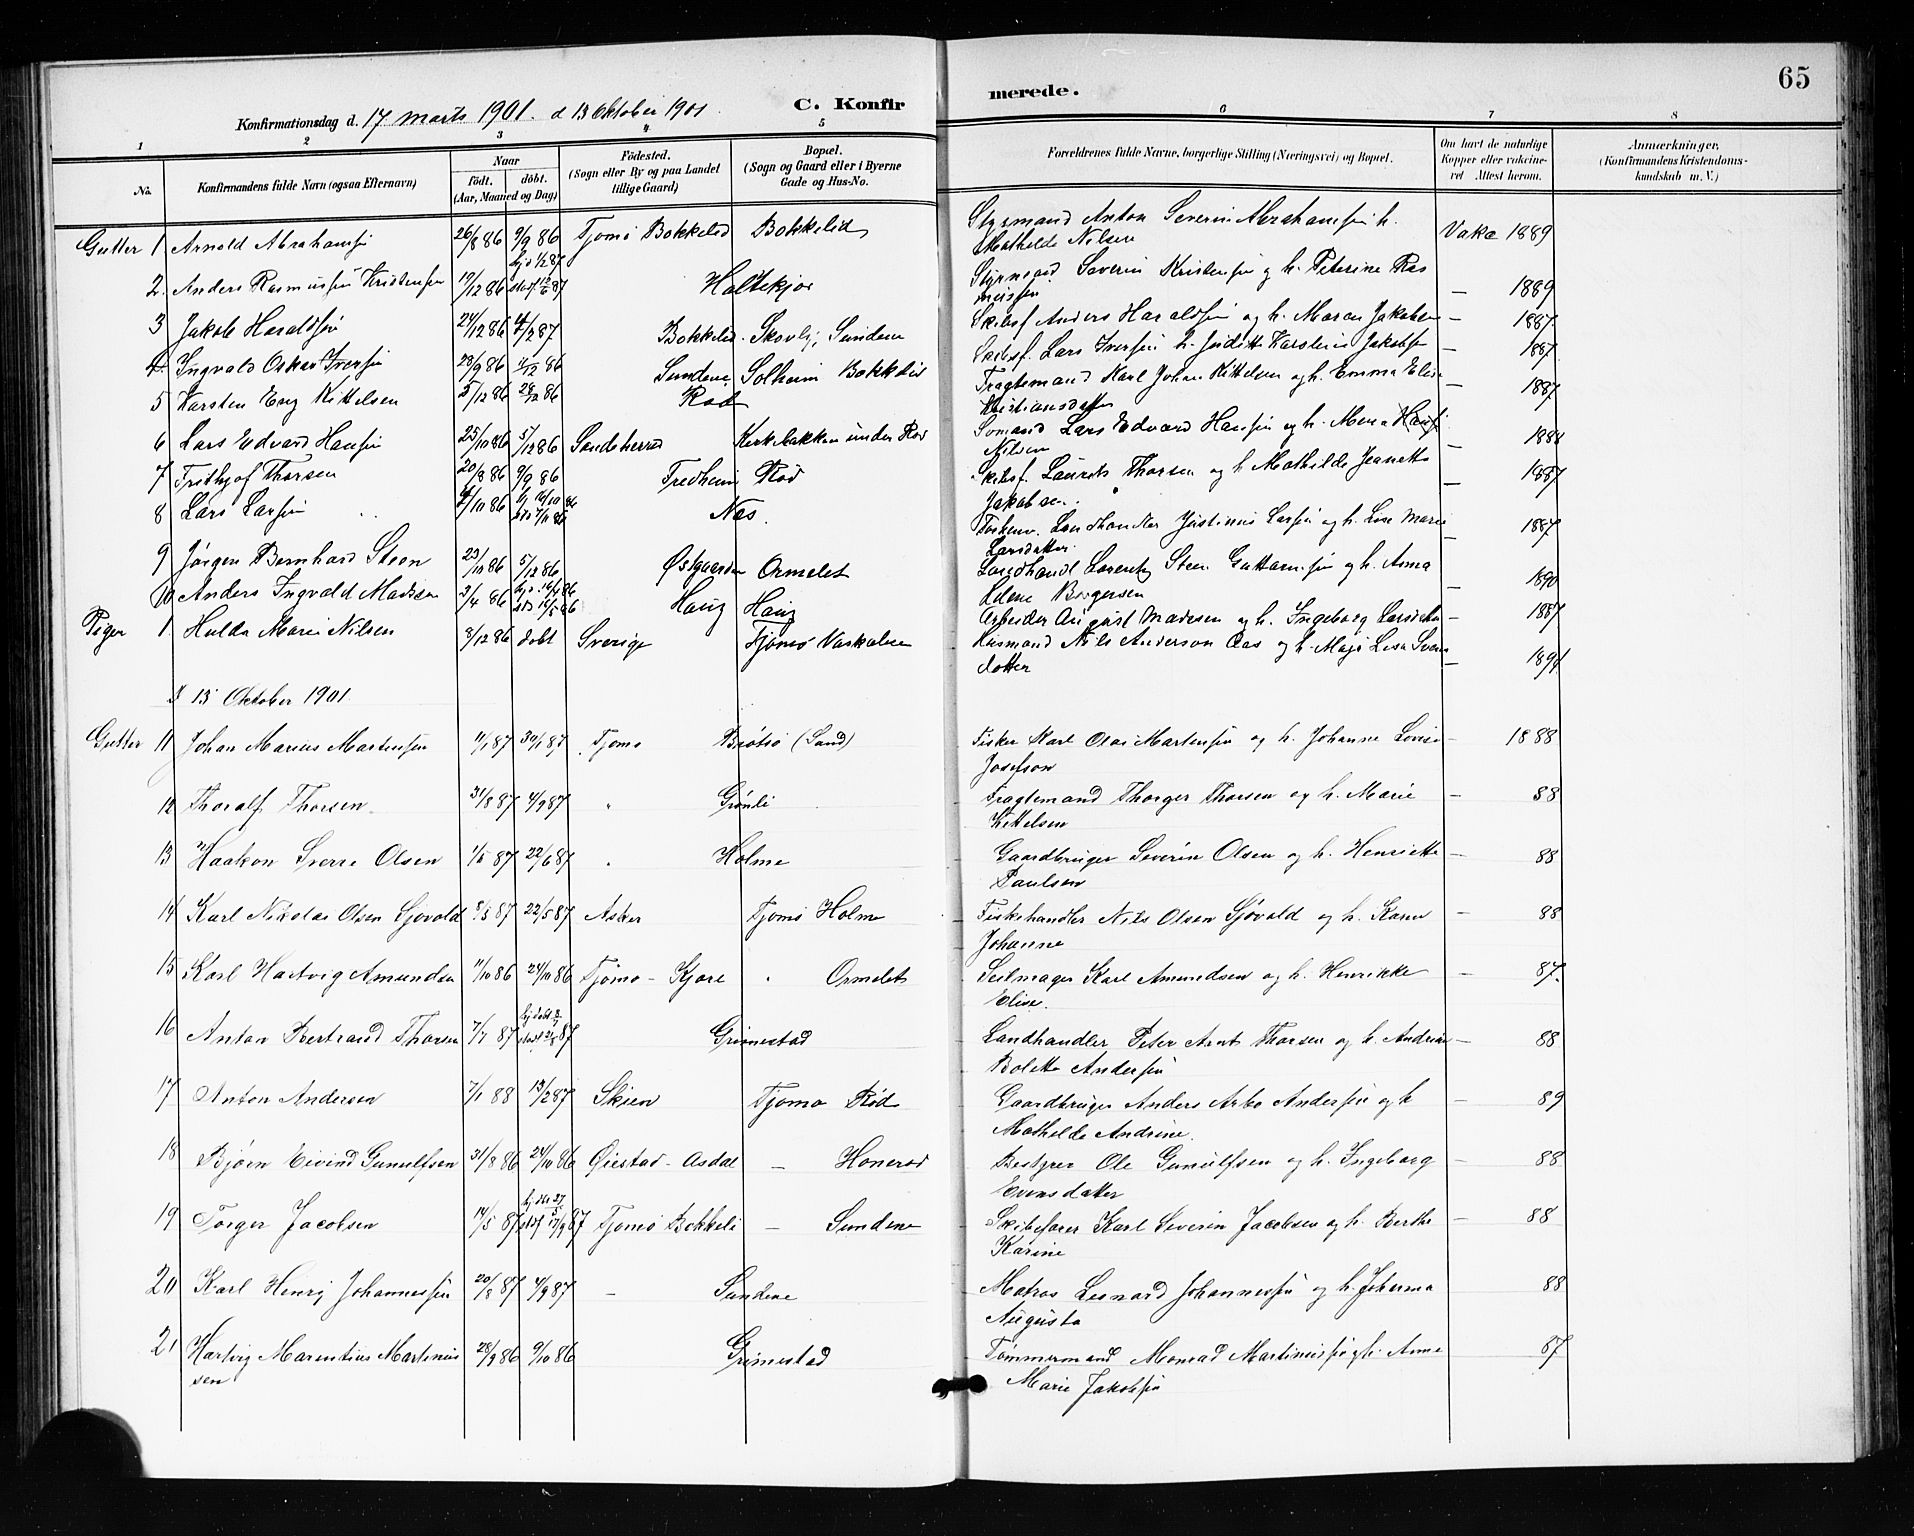 65
C. Konfirmerede.
Konfirmationsdag d. 17 marts 1901. d 13 Oktober 1901.
1 2 3 4 5 6 7 8
No. Konfirmandens fulde Navn (ogsaa Efternavn) Naar født. døbt. (Aar, Maaned og Dag) Fødested. (Sogn eller By og paa Landet tillige Gaard) Bopæl. (Sogn og Gaard eller i Byerne Gade og Hus-No. Forældrenes fulde Navne, borgerlige Stilling (Næringsvei) og Bopæl. Om havt de naturlige Kopper eller vakcineret Attest herom. Anmærkninger. (Konfirmandens Kristendomskundskab m. V.)
Gutter 1 Arnold Abrahamsen 26/8 86 9/9 86 Tjømø Bokkelid Bokkelid Styrmand Anton Severin Abrahamsen h. Vakc 1889
Mathilde Nilsen
2. Anders Rasmussen Kristensen 17/12 86 Holtekjær Styrmand Severin Kristensen og h. Peterine Ras — 1889
mussen
3 Jakob Haraldsen 24/12 86 4/2 87 Bokkelid. Skovly, Sundene Skibsf Anders Haraldsen og h. Maren Jakobsen — 1887
4 Ingvald Oskar Iversen 29/9 86 86 Sundene Solheim Bokkelid Skibsf. Lars Iversen h. Karstine Jakobsen — 1887
5 Karsten Eug Kittelsen 5/12 86 28/12 86 Rød Fragtemand Karl Johan Kittelsen og h. Emma Elise — 1887
Kristiansdatter
6 Lars Edvard Hansen 25/10 86 5/12 86 Sandeherred Kirkebakken under Rød Sømand Lars Edvard Hansen og h. Mina — 1888
Nilsen
7 Frithjof Thorsen 20/8 86 9/9 86 Fredheim Rød Skibsf. Laurits Thorsen og h Mathilde Jeanette — 1887
Jakobsen.
8 Lars Larsen 4/10 86 Næs. Landhandler Justinus Larsen og h. Lise Marie — 1887
Larsdatter.
9 Jørgen Bernhard Steen 23/10 86 5/12 86 Østgaarden Ormelet Landhandl Lorentz Steen Guttormsen og h. Anna — 1890
Edene Børgersen
10 Anders Ingvald Madsen 3/4 86 Haug Haug Arbeider August Madsen og h. Ingeborg Larsdatter — 1887
Piger 1. Hulda Marie Nilsen 8/12 86 døbt Sverige Tjømø Vaskalven Husmand Nils Anderson Aas og h. Maja Lisa Svens — 1891
dotter
d 13 Oktober 1901
Gutter 11 Johan Marius Martensen 11/1 87 30/1 87 Tjømø Brøtsø (Sand) Fisker Karl Olai Martensen og h. Johanne Lovise — 1888
Josefson
12 Thoralf Thorsen 31/8 87 4/9 87 " Grønli Fragtemand Thorger Thorsen og h. Marie — 88
Kittelsen
13 Haakon Sverre Olsen 1/5 87 22/6 87 " Holme Gaardbruger Severin Olsen og h. Henriette — 88
Paulsen
14 Karl Nikolai Olsen Sjøvold 8/3 87 22/5 87 Asker Tjømø Holme Fiskehandler Nils Olsen Sjøvold og h. Karen — 88
Johanne
15 Karl Hartvig Amundsen 11/10 86 24/10 86 Tjømø - Kjære " Ormelet Seilmager Karl Amundsen og h. Henrikke — 87.
Elise.
16 Anton Bertrand Thorsen 7/7 87 Grimestad Landhandler Peter Arnt Thorsen og h. Andrine — 88
Bolette Andersen
17 Anton Andersen 7/1 88 13/2 87 Skien Tjømø Rød Gaardbruger Anders Arbo Andersen og h — 89
Mathilde Andrine.
18 Bjørn Eivind Gunulfsen 31/8 86 24/10 86 Øiestad - Asdal — Honerød Bestyrer Ole Gunulfsen og h. Ingeborg — 88
Evensdatter
19 Torger Jacobsen 14/5 87 Tjømø Bokkeli — Sundene Skibsfører Karl Severin Jacobsen og h. Berthe — 88
Karine
20 Karl Henry Johannessen 20/8 87 4/9 87 — Sundene Matros Leonard Johannessen og h. Johanna 88
Augusta
21 Hartvig Marentius Martinius 28/9 86 9/10 86 Grimestad Tømmermand Monrad Martiniussen og h. Anne 87
sen Marie Jakobsen